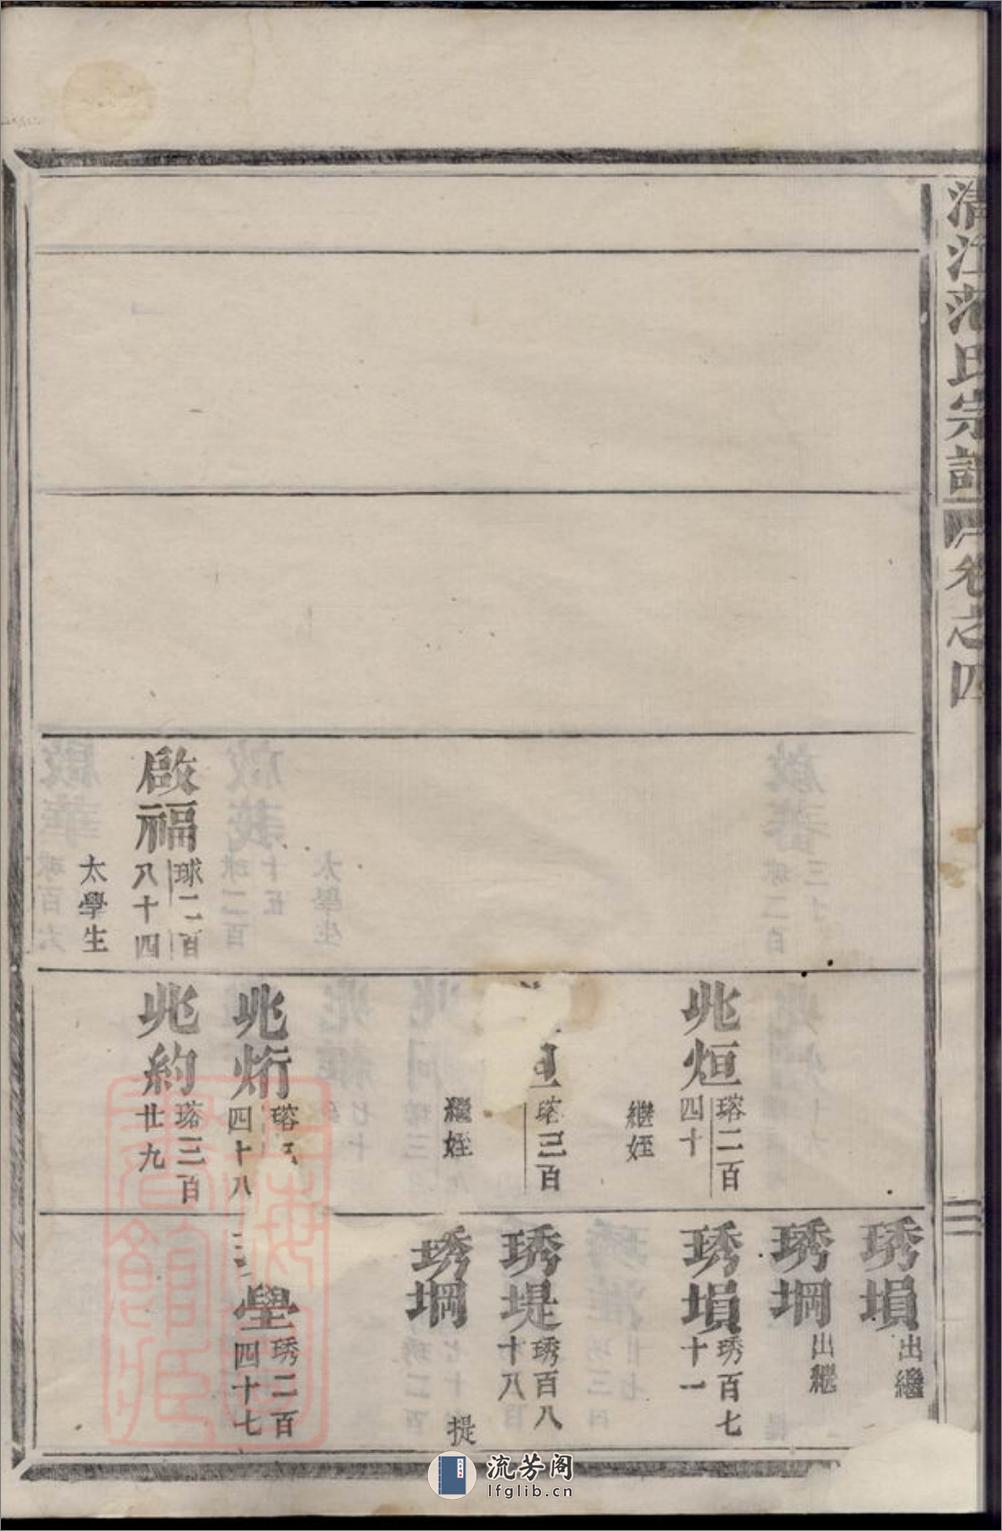 清江范氏宗譜 卷之四 三
啟福 球二百八十四
太學生
兆烜 瑢二百四十
継姪
瑢三百
繼姪
兆烆 瑢 四十八
兆約 瑢三百廿九
琇塤 出繼
琇堈 出継
琇塤 琇百七十一
琇堤 琇百八十八
琇堈
提
壆 琇二百四十七
上海圖書館藏
流芳阁
lfglib.cn